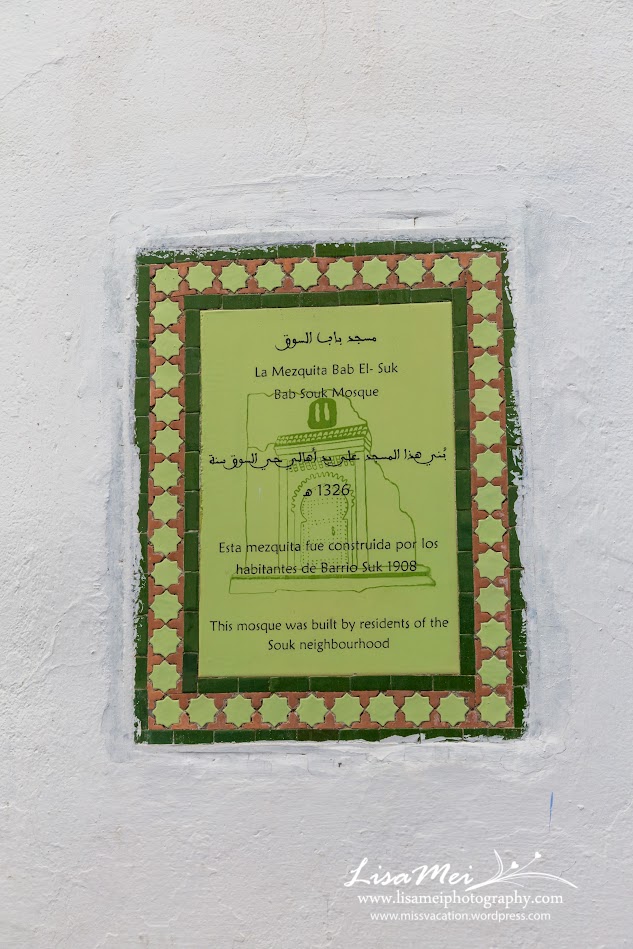 مسجد باب السوق
La Mezquita Bab El- Suk
Bab Souk Mosque
بُني هذا المسجد على يد أهالي حي السوق سنة
1326 هـ
Esta mezquita fue construida por los
habitantes de Barrio Suk 1908
This mosque was built by residents of the
Souk neighbourhood
LisaMei
www.lisameiphotography.com
www.missvacation.wordpress.com